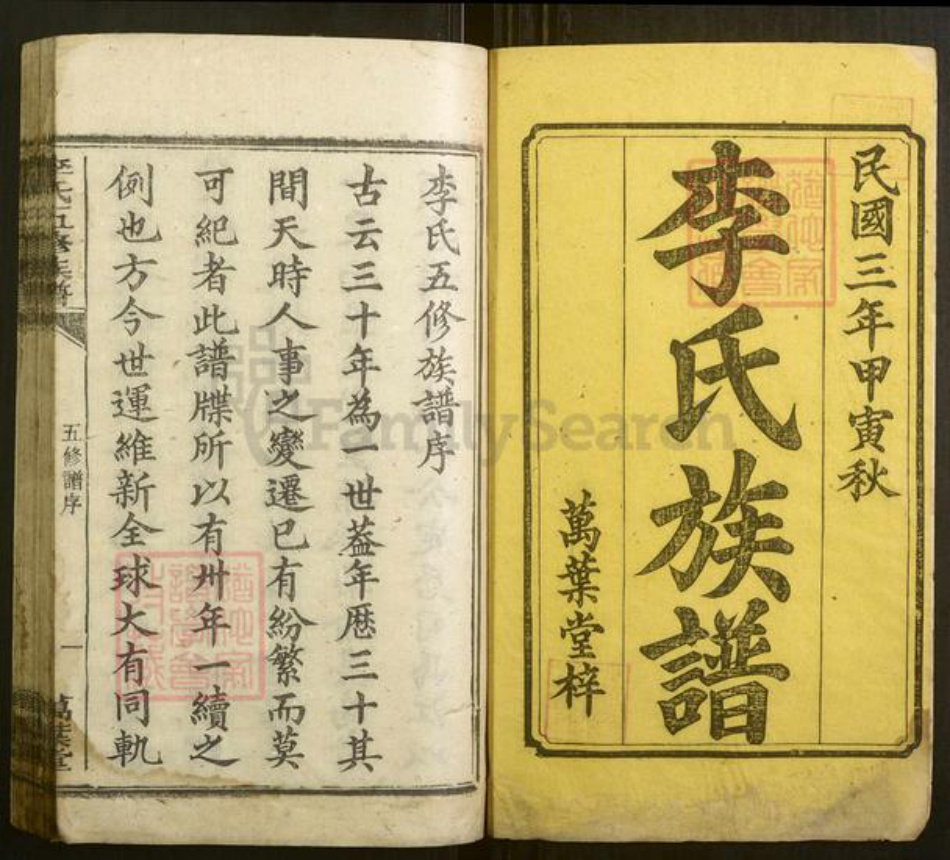 民國三年甲寅秋
李氏族譜
萬葉堂梓
李氏五修族譜序
古云三十年為一世葢年歴三十其
間天時人事之變遷已有紛繁而莫
可紀者此譜牒所以有卅年一續之
例也方今世運維新全球大有同軌
李氏五修族譜
五修譜序
一
萬葉堂
FamilySearch